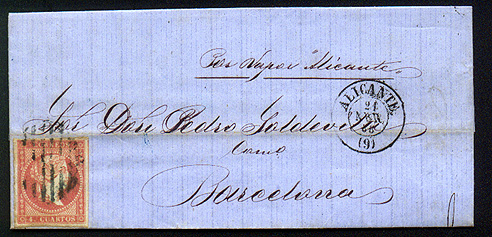 Por Vapor "Alicante"
ALICANTE
21
ABR
(9)
Don Pedro Soldevi
Barcelona
4 CUARTOS